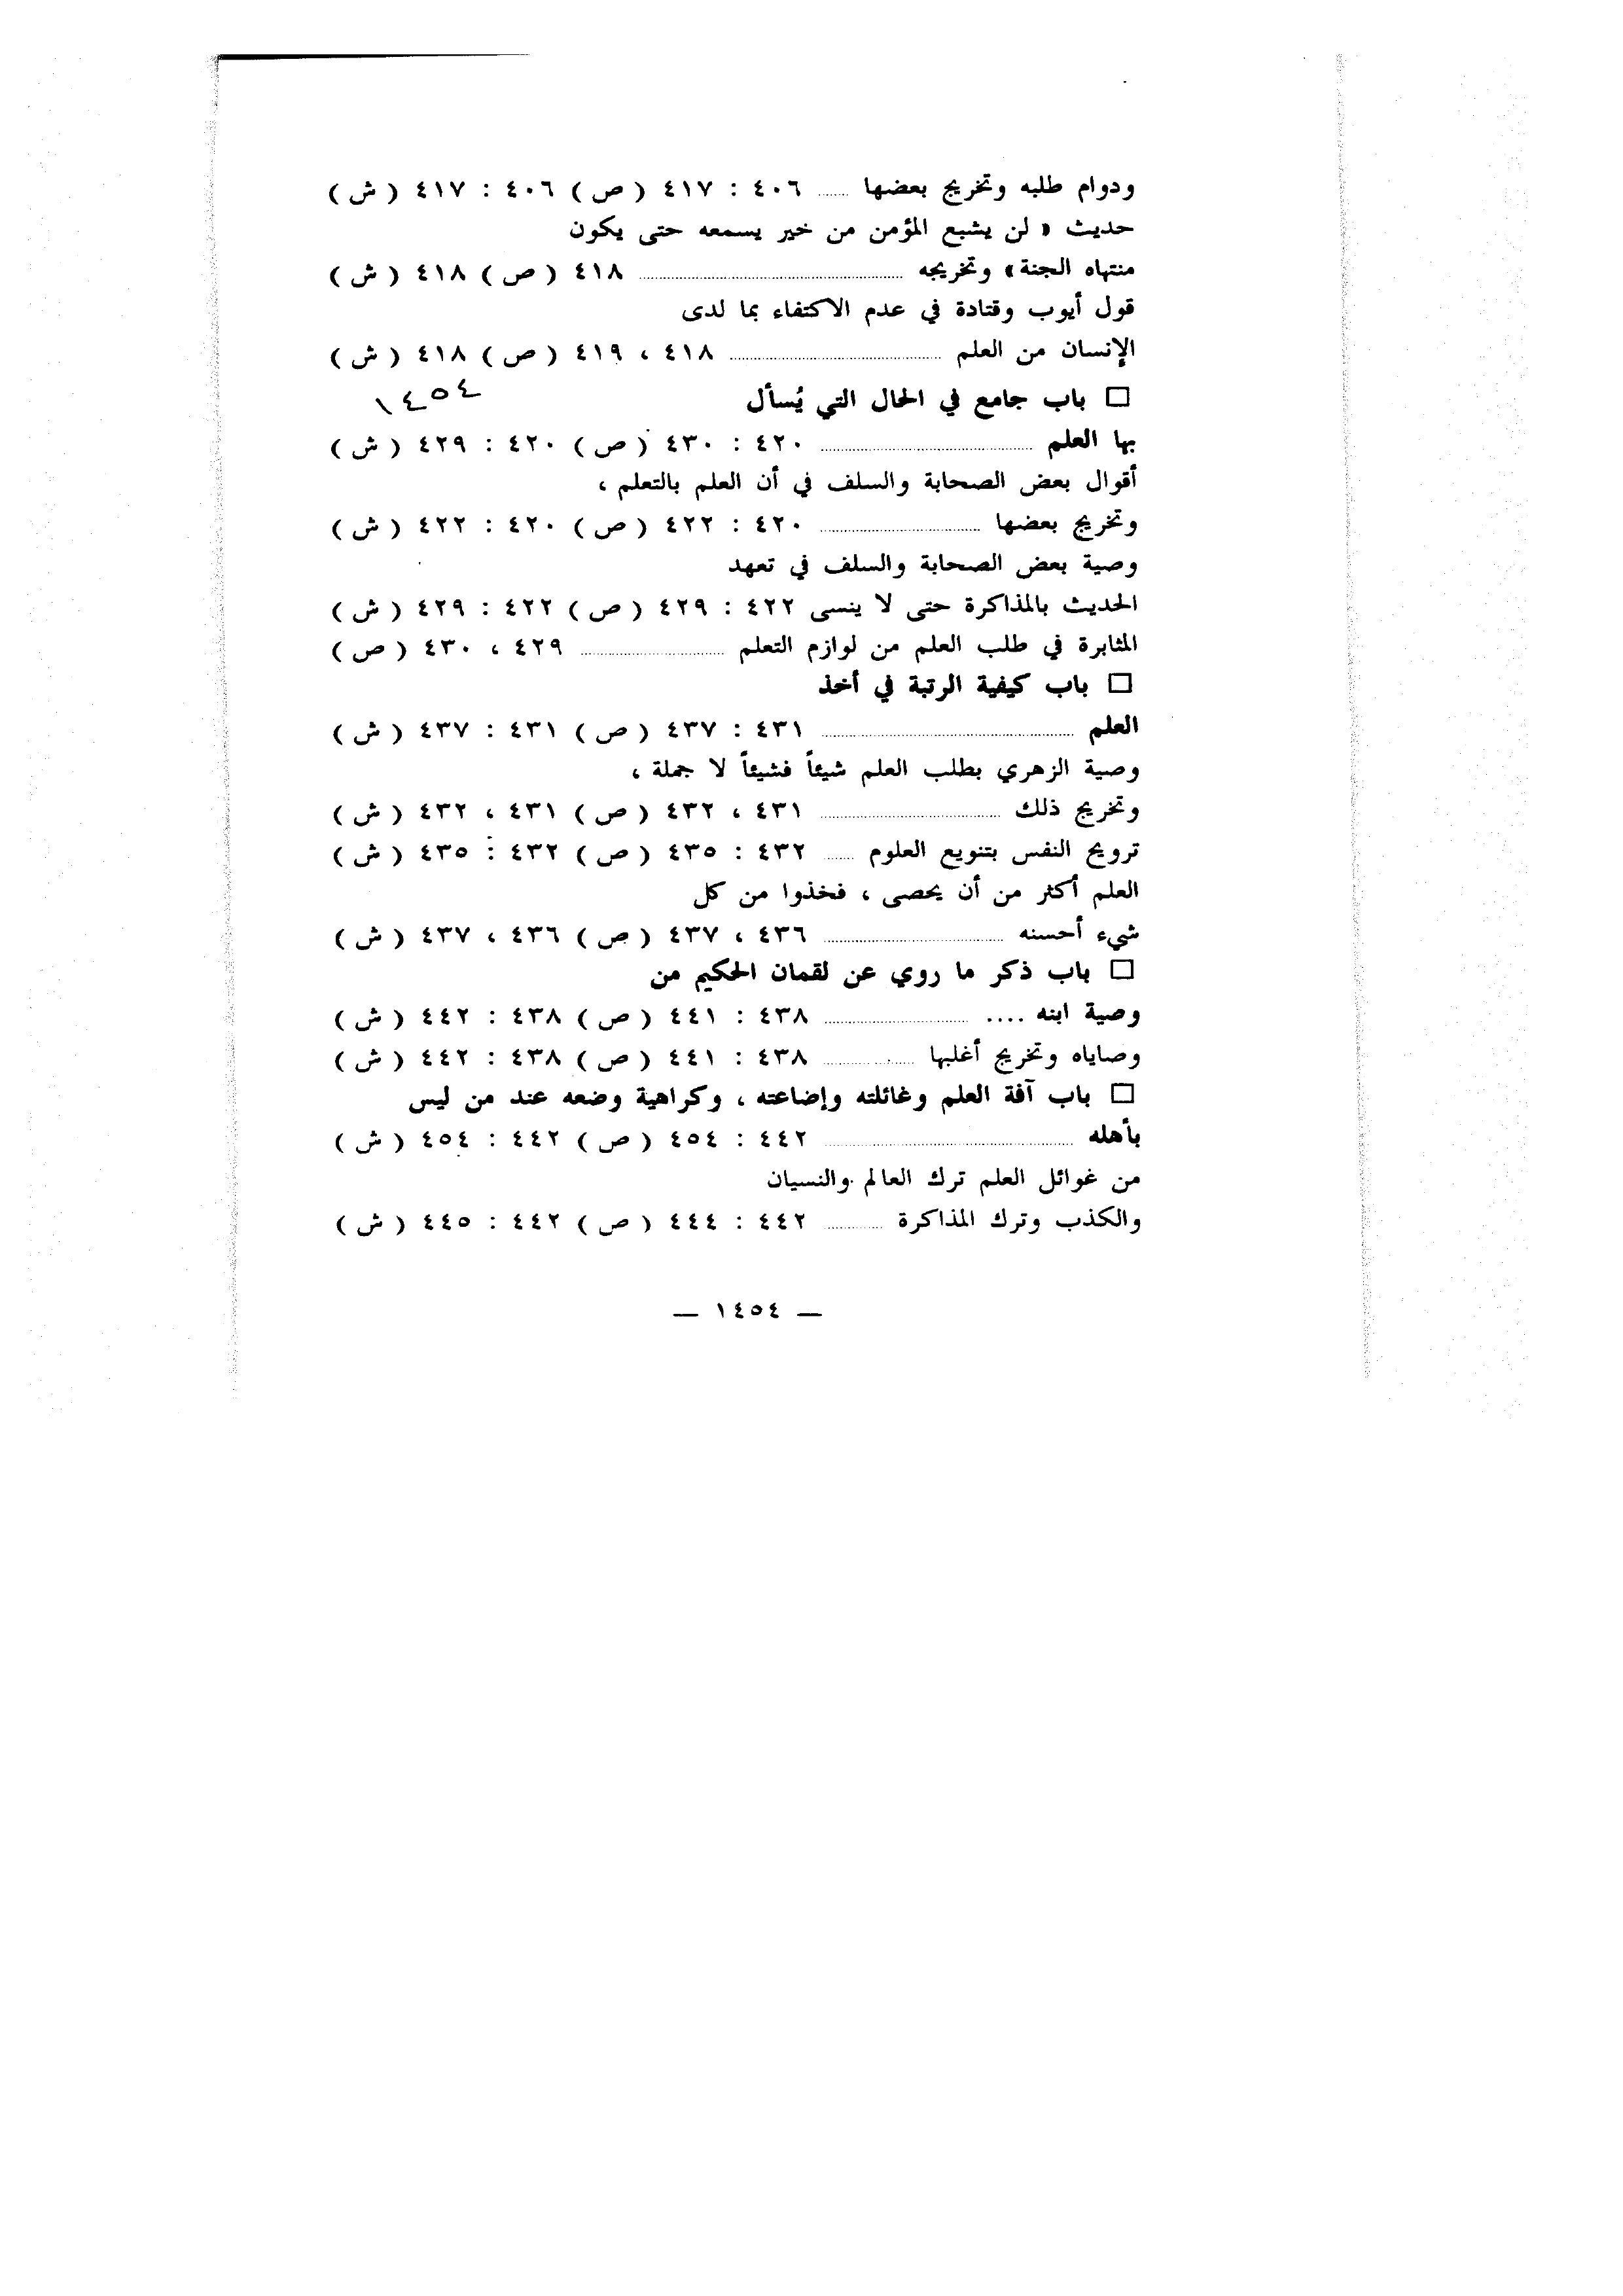 ودوام طلبه وتخريج بعضها ...... ٤٠٦ : ٤١٧ ( ص ) ٤٠٦ : ٤١٧ ( ش )
حديث « لن يشبع المؤمن من خير يسمعه حتى يكون
منتهاه الجنة » وتخريجه ...... ٤١٨ ( ص ) ٤١٨ ( ش )
قول أيوب وقتادة في عدم الاكتفاء بما لدى
الإنسان من العلم ...... ٤١٨ ، ٤١٩ ( ص ) ٤١٨ ( ش )
□ باب جامع في الحال التي يُسأل
١٤٥٤
بها العلم ...... ٤٢٠ : ٤٣٠ ( ص ) ٤٢٠ : ٤٢٩ ( ش )
أقوال بعض الصحابة والسلف في أن العلم بالتعلم ،
وتخريج بعضها ...... ٤٢٠ : ٤٢٢ ( ص ) ٤٢٠ : ٤٢٢ ( ش )
وصية بعض الصحابة والسلف في تعهد
الحديث بالمذاكرة حتى لا ينسى ٤٢٢ : ٤٢٩ ( ص ) ٤٢٢ : ٤٢٩ ( ش )
المثابرة في طلب العلم من لوازم التعلم ...... ٤٢٩ ، ٤٣٠ ( ص )
□ باب كيفية الرتبة في أخذ
العلم ...... ٤٣١ : ٤٣٧ ( ص ) ٤٣١ : ٤٣٧ ( ش )
وصية الزهري بطلب العلم شيئاً فشيئاً لا جملة ،
وتخريج ذلك ...... ٤٣١ ، ٤٣٢ ( ص ) ٤٣١ ، ٤٣٢ ( ش )
ترويح النفس بتنويع العلوم ...... ٤٣٢ : ٤٣٥ ( ص ) ٤٣٢ : ٤٣٥ ( ش )
العلم أكثر من أن يحصى ، فخذوا من كل
شيء أحسنه ...... ٤٣٦ ، ٤٣٧ ( ص ) ٤٣٦ ، ٤٣٧ ( ش )
□ باب ذكر ما روي عن لقمان الحكيم من
وصية ابنه .... ...... ٤٣٨ : ٤٤١ ( ص ) ٤٣٨ : ٤٤٢ ( ش )
وصاياه وتخريج أغلبها ...... ٤٣٨ : ٤٤١ ( ص ) ٤٣٨ : ٤٤٢ ( ش )
□ باب آفة العلم وغائلته وإضاعته ، وكراهية وضعه عند من ليس
بأهله ...... ٤٤٢ : ٤٥٤ ( ص ) ٤٤٢ : ٤٥٤ ( ش )
من غوائل العلم ترك العالم والنسيان
والكذب وترك المذاكرة ...... ٤٤٢ : ٤٤٤ ( ص ) ٤٤٢ : ٤٤٥ ( ش )
— ١٤٥٤ —